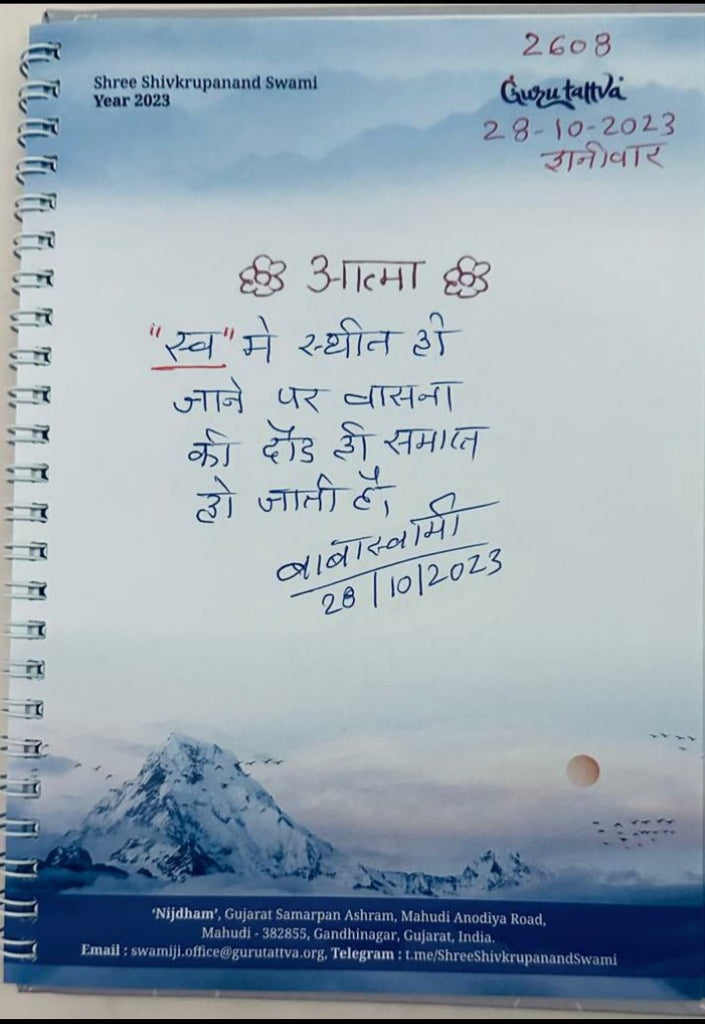 2608
Shree Shivkrupanand Swami
Year 2023
Gurutattva
28-10-2023
शनीवार
आत्मा
"स्व" मे स्थीत हो
जाने पर वासना
की दौड ही समाप्त
हो जाती है,
बाबास्वामी
28/10/2023
'Nijdham', Gujarat Samarpan Ashram, Mahudi Anodiya Road,
Mahudi - 382855, Gandhinagar, Gujarat, India.
Email : swamiji.office@gurutattva.org, Telegram : t.me/ShreeShivkrupanandSwami